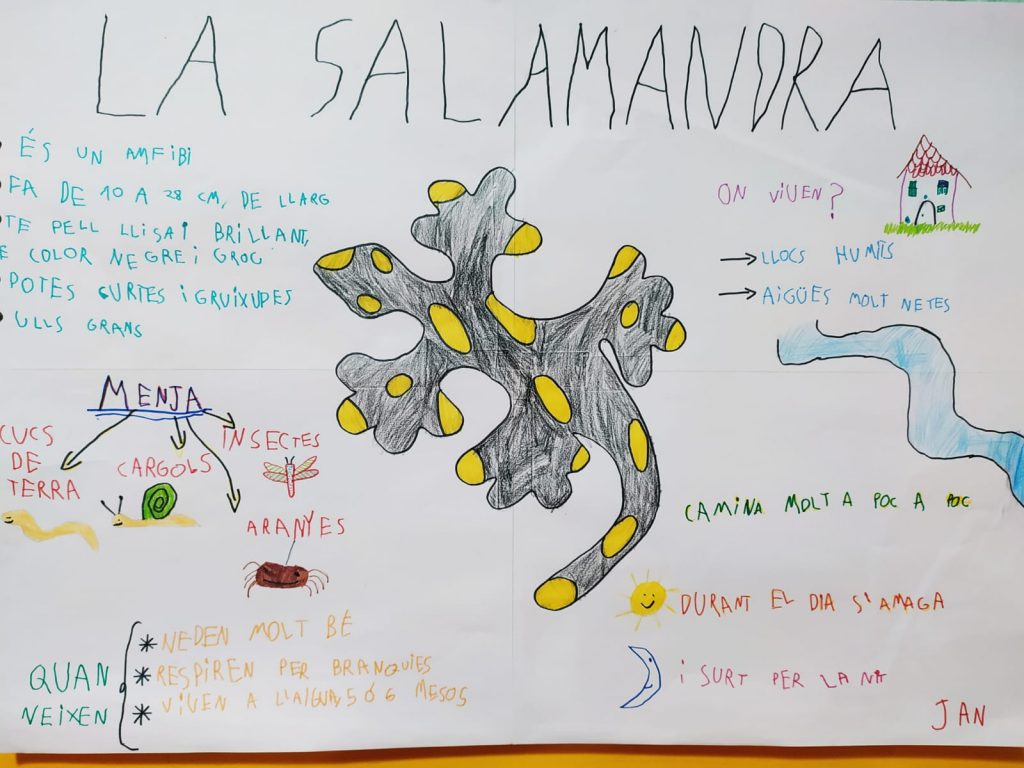 LA SALAMANDRA
ÉS UN AMFIBI
FA DE 10 A 28 CM, DE LLARG
TE PELL LLISA I BRILLANT,
COLOR NEGRE i GROC
POTES CURTES i GRUIXUDES
ULLS GRANS
ON VIUEN?
LLOCS HUMITS
AIGÜES MOLT NETES
MENJA
CUCS
DE
TERRA
CARGOLS
INSECTES
ARANYES
CAMINA MOLT A POC A POC
DURANT EL DIA S'AMAGA
i SURT PER LA NIT
QUAN
NEIXEN
* NEDEN MOLT BÉ
* RESPIREN PER BRANQUIES
* VIUEN A L'AIGUA 5 Ó 6 MESOS
JAN